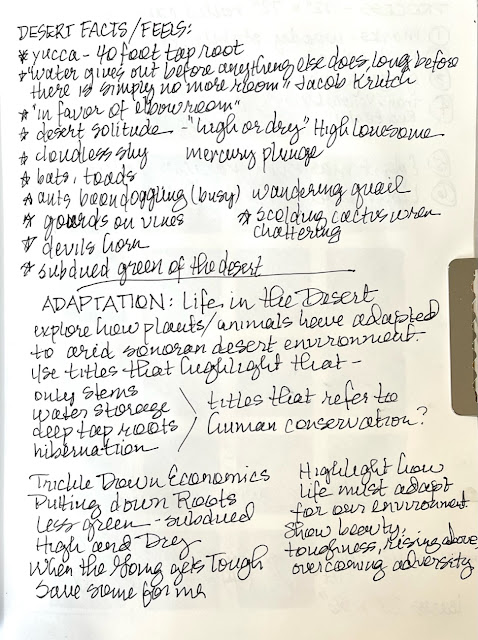 DESERT FACTS/FEELS:
* yucca - 40 foot tap root
* "water gives out before anything else does, long before
there is simply no more room" Jacob Krutch
* "in favor of elbow room"
* desert solitude - "high or dry" High lonesome
* cloudless sky mercury plunge
* bats, toads
* ants boondoggling (busy) wandering quail
* gourds on vines * scolding cactus wren
chattering
* devils horn
* subdued green of the desert
ADAPTATION: Life in the Desert
explore how plants/animals have adapted
to arid sonoran desert environment.
Use titles that highlight that -
only stems
water storage
deep tap roots
hibernation
titles that refer to
human conservation?
Trickle Down Economics
Putting down Roots
Less green - subdued
High and Dry
When the Going gets Tough
Save some for me
Highlight how
life must adapt
for our environment.
Show beauty,
toughness, rising above,
overcoming adversity